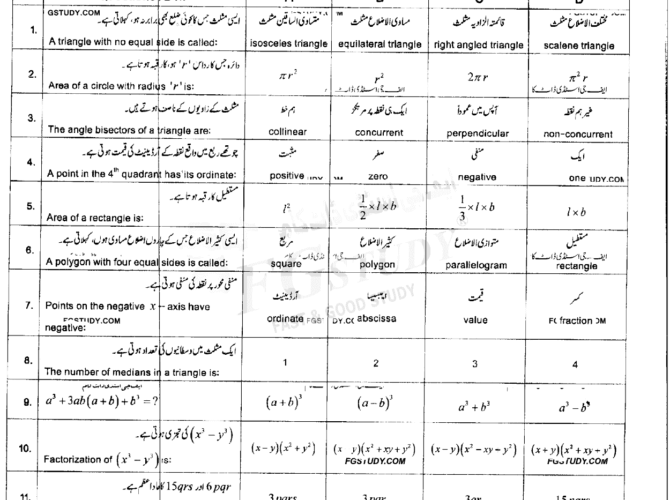 GSTUDY.COM
1. ایسی مثلث جس کا کوئی ضلع بھی برابر نہ ہو، کہلاتی ہے۔ متساوی الساقین مثلث مساوی الاضلاع مثلث قائمتہ الزاویہ مثلث مختلف الاضلاع مثلث
A triangle with no equal side is called: isosceles triangle equilateral triangle right angled triangle scalene triangle
2. دائرہ جس کا رداس 'r' ہو، کا رقبہ ہوتا ہے۔
Area of a circle with radius 'r' is: πr² r² 2πr π²r
3. مثلث کے زاویوں کے ناصف ہوتے ہیں۔ ہم خط ایک ہی نقطہ پر مرتکز آپس میں عموداً غیر ہم نقطہ
The angle bisectors of a triangle are: collinear concurrent perpendicular non-concurrent
4. چوتھے ربع میں واقع نقطہ کے آرڈینیٹ کی قیمت ہوتی ہے۔ مثبت صفر منفی ایک
A point in the 4th quadrant has its ordinate: positive zero negative one UDY.COM
5. مستطیل کا رقبہ ہوتا ہے۔
Area of a rectangle is: l² 1/2 × l × b 1/3 × l × b l × b
6. ایسی کثیر الاضلاع جس کے چاروں اضلاع مساوی ہوں، کہلاتی ہے۔ مربع کثیر الاضلاع متوازی الاضلاع مستطیل
A polygon with four equal sides is called: square polygon parallelogram rectangle
7. منفی محور پر نقطہ کی منفی ہوتی ہے۔ آرڈینیٹ ایبسیسا قیمت کسر
Points on the negative x – axis have negative: ordinate abscissa value fraction
FGSTUDY.COM
8. ایک مثلث میں وسطانیوں کی تعداد ہوتی ہے۔
The number of medians in a triangle is: 1 2 3 4
9. a³ + 3ab(a + b) + b³ = ? (a + b)³ (a – b)³ a³ + b³ a³ – b³
10. (x³ – y³) کی تجزی ہوتی ہے۔
Factorization of (x³ – y³) is: (x – y)(x² + y²) (x y)(x² + xy + y²) (x – y)(x² – xy + y²) (x + y)(x² + xy + y²)
FGSTUDY.COM FGSTUDY.COM
11. 6pqr اور 15qrs کا عاد اعظم ہے۔
3pqrs 3pqr 3qr 15pqrs
FGSTUDY
FAST & GOOD STUDY